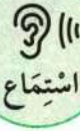 اسْتِمَاع